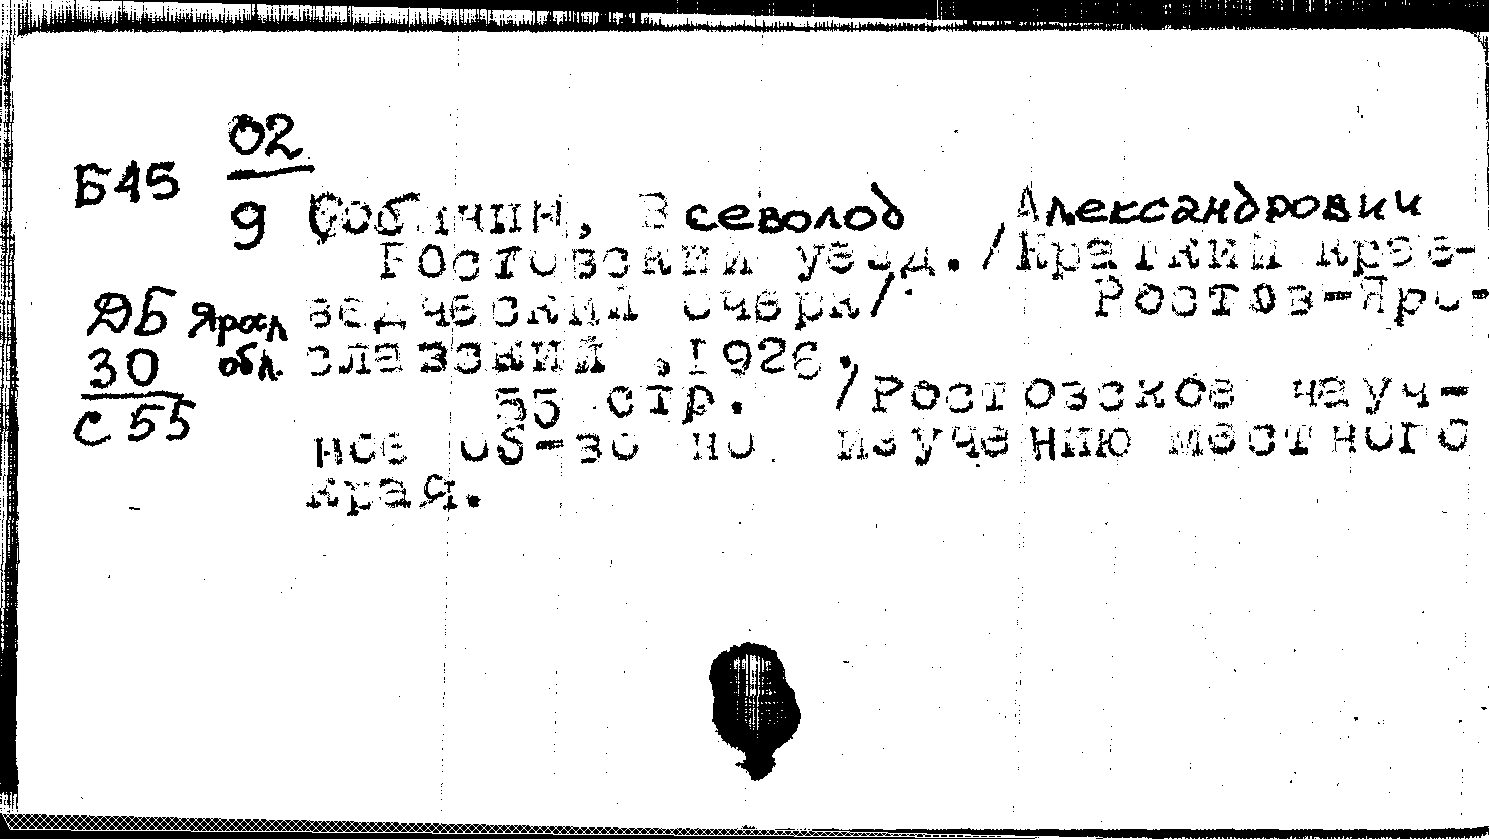 02
Б45
9 Собянин, Всеволод Александрович
Ростовский уезд. /Краткий крае-
ДБ Яросл ведческий очерк/. Ростов-Яро-
30 обл. славский ,1926.
С 55 55 стр. /Ростовское науч-
ное об-во по изучению местного
края.